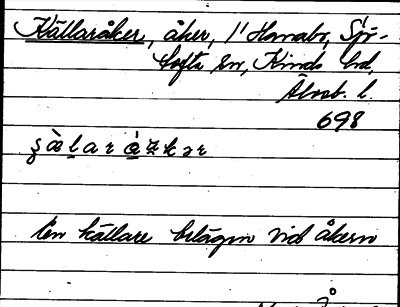 Källaråker, åker, 1/1 Hanabo, Sjö-
tofta sn, Kinds hd,
Älvsb. l.
698
En källare belägen vid åkern